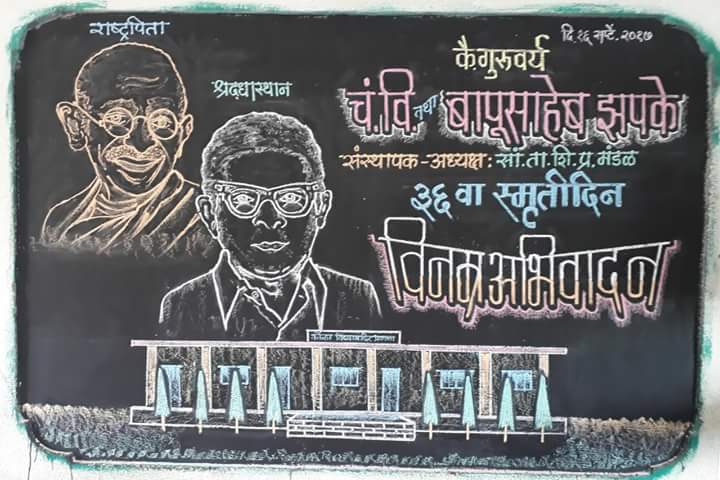 राष्ट्रपिता
श्रद्धास्थान
दि.२६ सप्टें. २०१७
कै.गुरुवर्य
चं.वि. तथा बापूसाहेब झपके
संस्थापक-अध्यक्ष: सां.ता.शि.प्र.मंडळ
३६ वा स्मृतीदिन
विनम्र अभिवादन